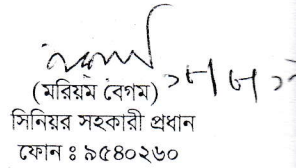 (মরিয়ম বেগম)
সিনিয়র সহকারী প্রধান
ফোন ঃ ৯৫৪০২৬০